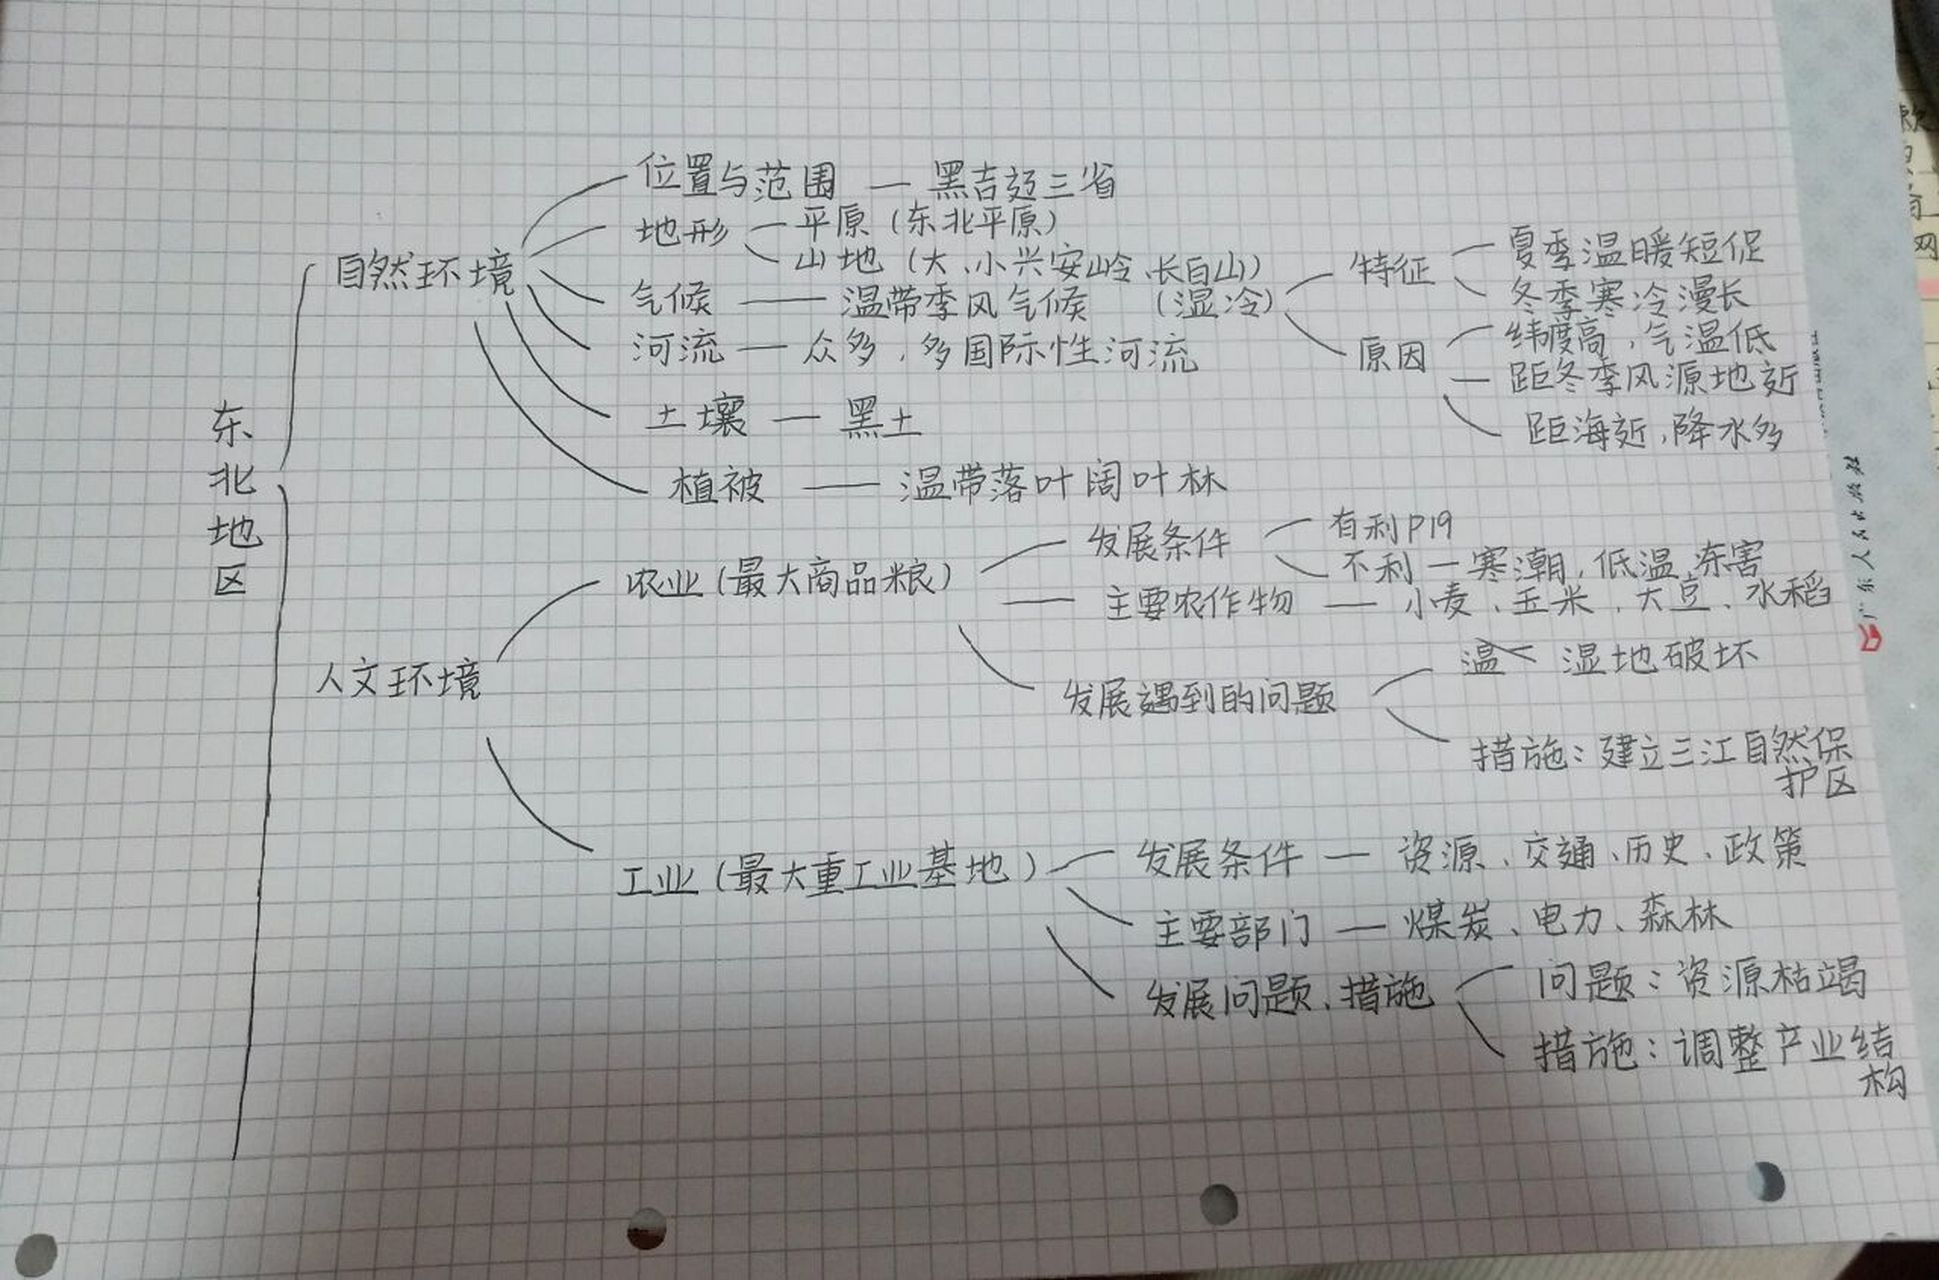 东北地区
自然环境
位置与范围 — 黑吉辽三省
地形
平原（东北平原）
山地（大、小兴安岭、长白山）
气候 —— 温带季风气候 （湿冷）
特征
夏季温暖短促
冬季寒冷漫长
原因
纬度高，气温低
距冬季风源地近
距海近，降水多
河流 — 众多，多国际性河流
土壤 — 黑土
植被 —— 温带落叶阔叶林
人文环境
农业（最大商品粮）
发展条件
有利P19
不利 — 寒潮，低温 冻害
主要农作物 — 小麦、玉米、大豆、水稻
发展遇到的问题
湿地破坏
措施：建立三江自然保
护区
工业（最大重工业基地）
发展条件 — 资源、交通、历史、政策
主要部门 — 煤炭、电力、森林
发展问题、措施
问题：资源枯竭
措施：调整产业结
构
广东人民出版社
网